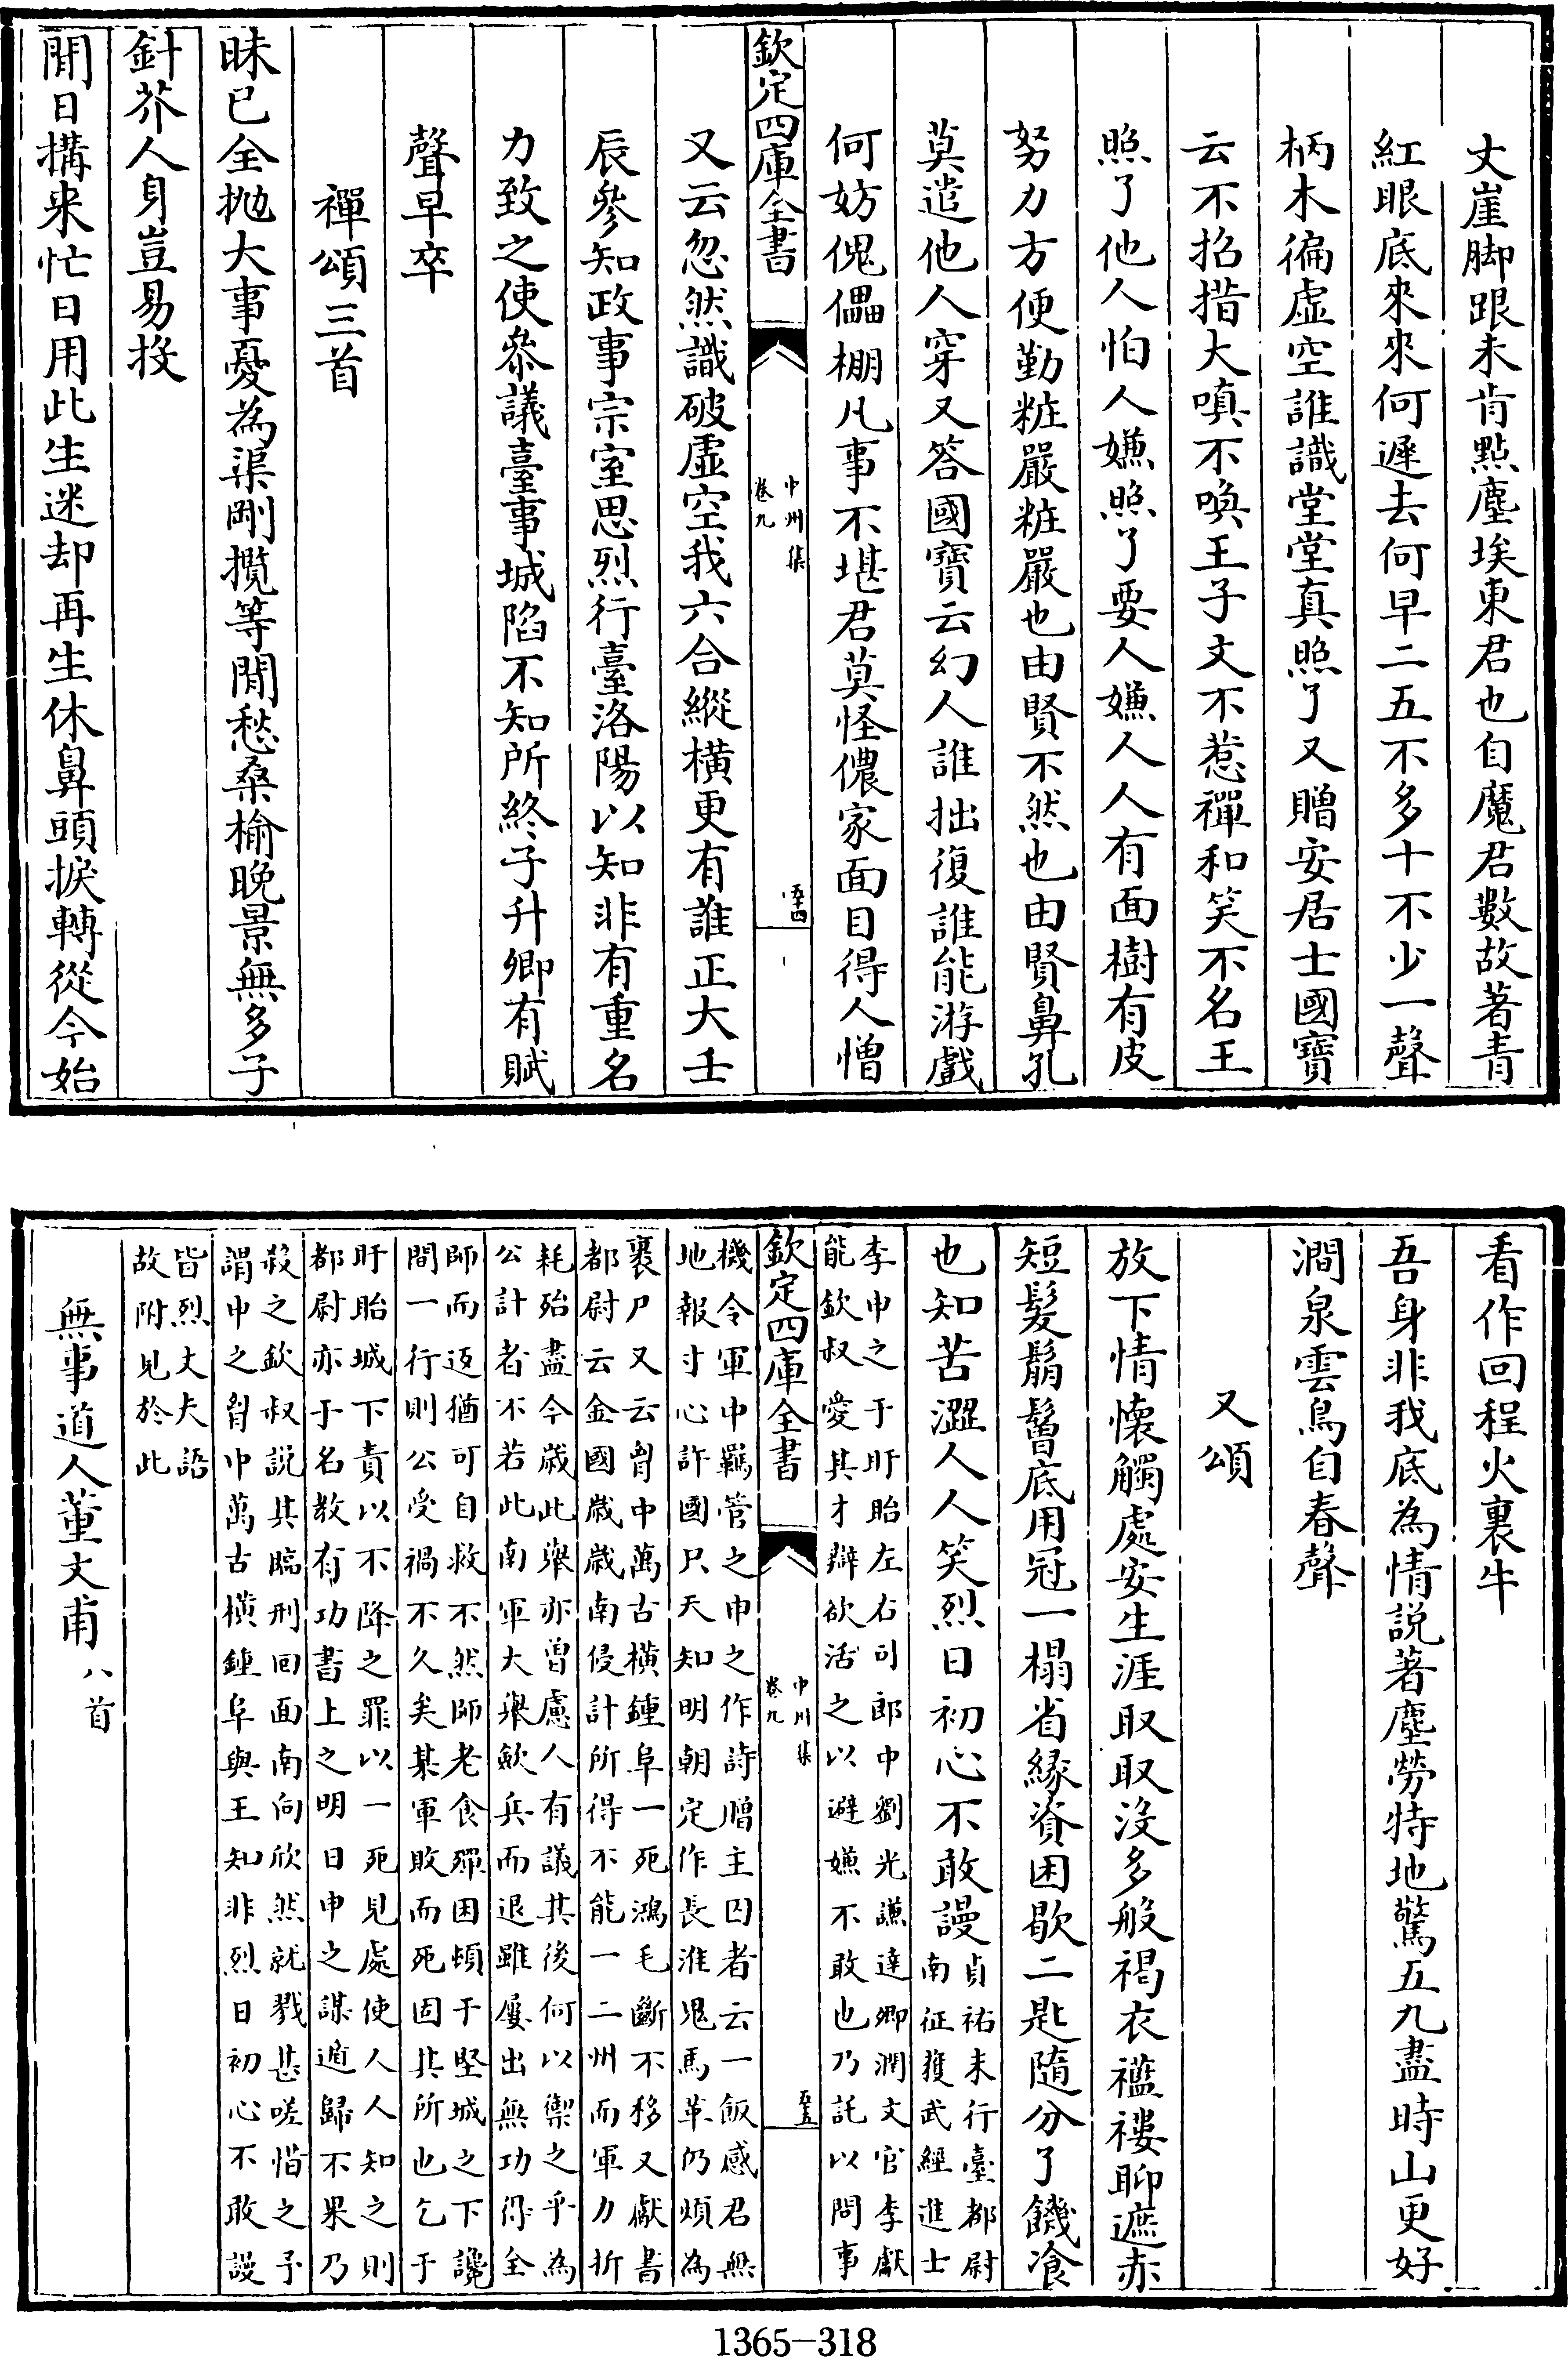 丈崖脚跟未肯點塵埃東君也自魔君數故著青
紅眼底來來何遲去何早二五不多十不少一聲
柄木徧虛空誰識堂堂真照了又贈安居士國寶
云不招揩大嗔不喚王子文不惹禪和笑不名王
照了他人怕人嫌照了要人嫌人人有面樹有皮
努力方便勤粧嚴粧嚴也由賢不然也由賢鼻孔
莫遣他人穿又答國寶云幻人誰拙復誰能游戲
何妨傀儡棚凡事不堪君莫怪儂家面目得人憎
欽定四庫全書
中州集
卷九
五十四
又云忽然識破虛空我六合縱橫更有誰正大壬
辰參知政事宗室思烈行臺洛陽以知非有重名
力致之使參議臺事城陷不知所終子升卿有賦
聲早卒
禪頌三首
昧已全拋大事憂為渠剛攬等閒愁桑榆晚景無多子
針芥人身豈易投
閒日搆來忙日用此生迷却再生休鼻頭捩轉從今始
看作回程火裏牛
吾身非我底為情說著塵勞特地驚五九盡時山更好
澗泉雲鳥自春聲
又頌
放下情懷觸處安生涯取取沒多般褐衣襤褸聊遮赤
短髮鬅鬙底用冠一榻省緣資困歇二匙隨分了饑飡
也知苦澀人人笑烈日初心不敢謾
貞祐末行臺都尉
南征獲武經進士
李申之于盱眙左右司郎中劉光謙達卿潤文官李獻
能欽叔愛其才辯欲活之以避嫌不敢也乃託以問事
欽定四庫全書
中州集
卷九
五十五
機令軍中羈管之申之作詩贈主囚者云一飯感君無
地報寸心許國只天知明朝定作長淮鬼馬革仍煩為
裹尸又云胷中萬古橫鍾阜一死鴻毛斷不移又獻書
都尉云金國歲歲南侵計所得不能一二州而軍力折
耗殆盡今歲此舉亦曾慮人有議其後何以禦之乎為
公計者不若此南軍大舉歛兵而退雖屢出無功得全
師而返猶可自救不然師老食殫困頓于堅城之下讒
間一行則公受禍不久矣某軍敗而死固其所也乞于
盱眙城下責以不降之罪以一死見處使人人知之則
都尉亦于名教有功書上之明日申之謀遁歸不果乃
殺之欽叔說其臨刑回面南向欣然就戮甚嗟惜之予
謂申之胷中萬古橫鍾阜與王知非烈日初心不敢謾
皆烈丈夫語
故附見於此
無事道人董文甫八首
1365-318